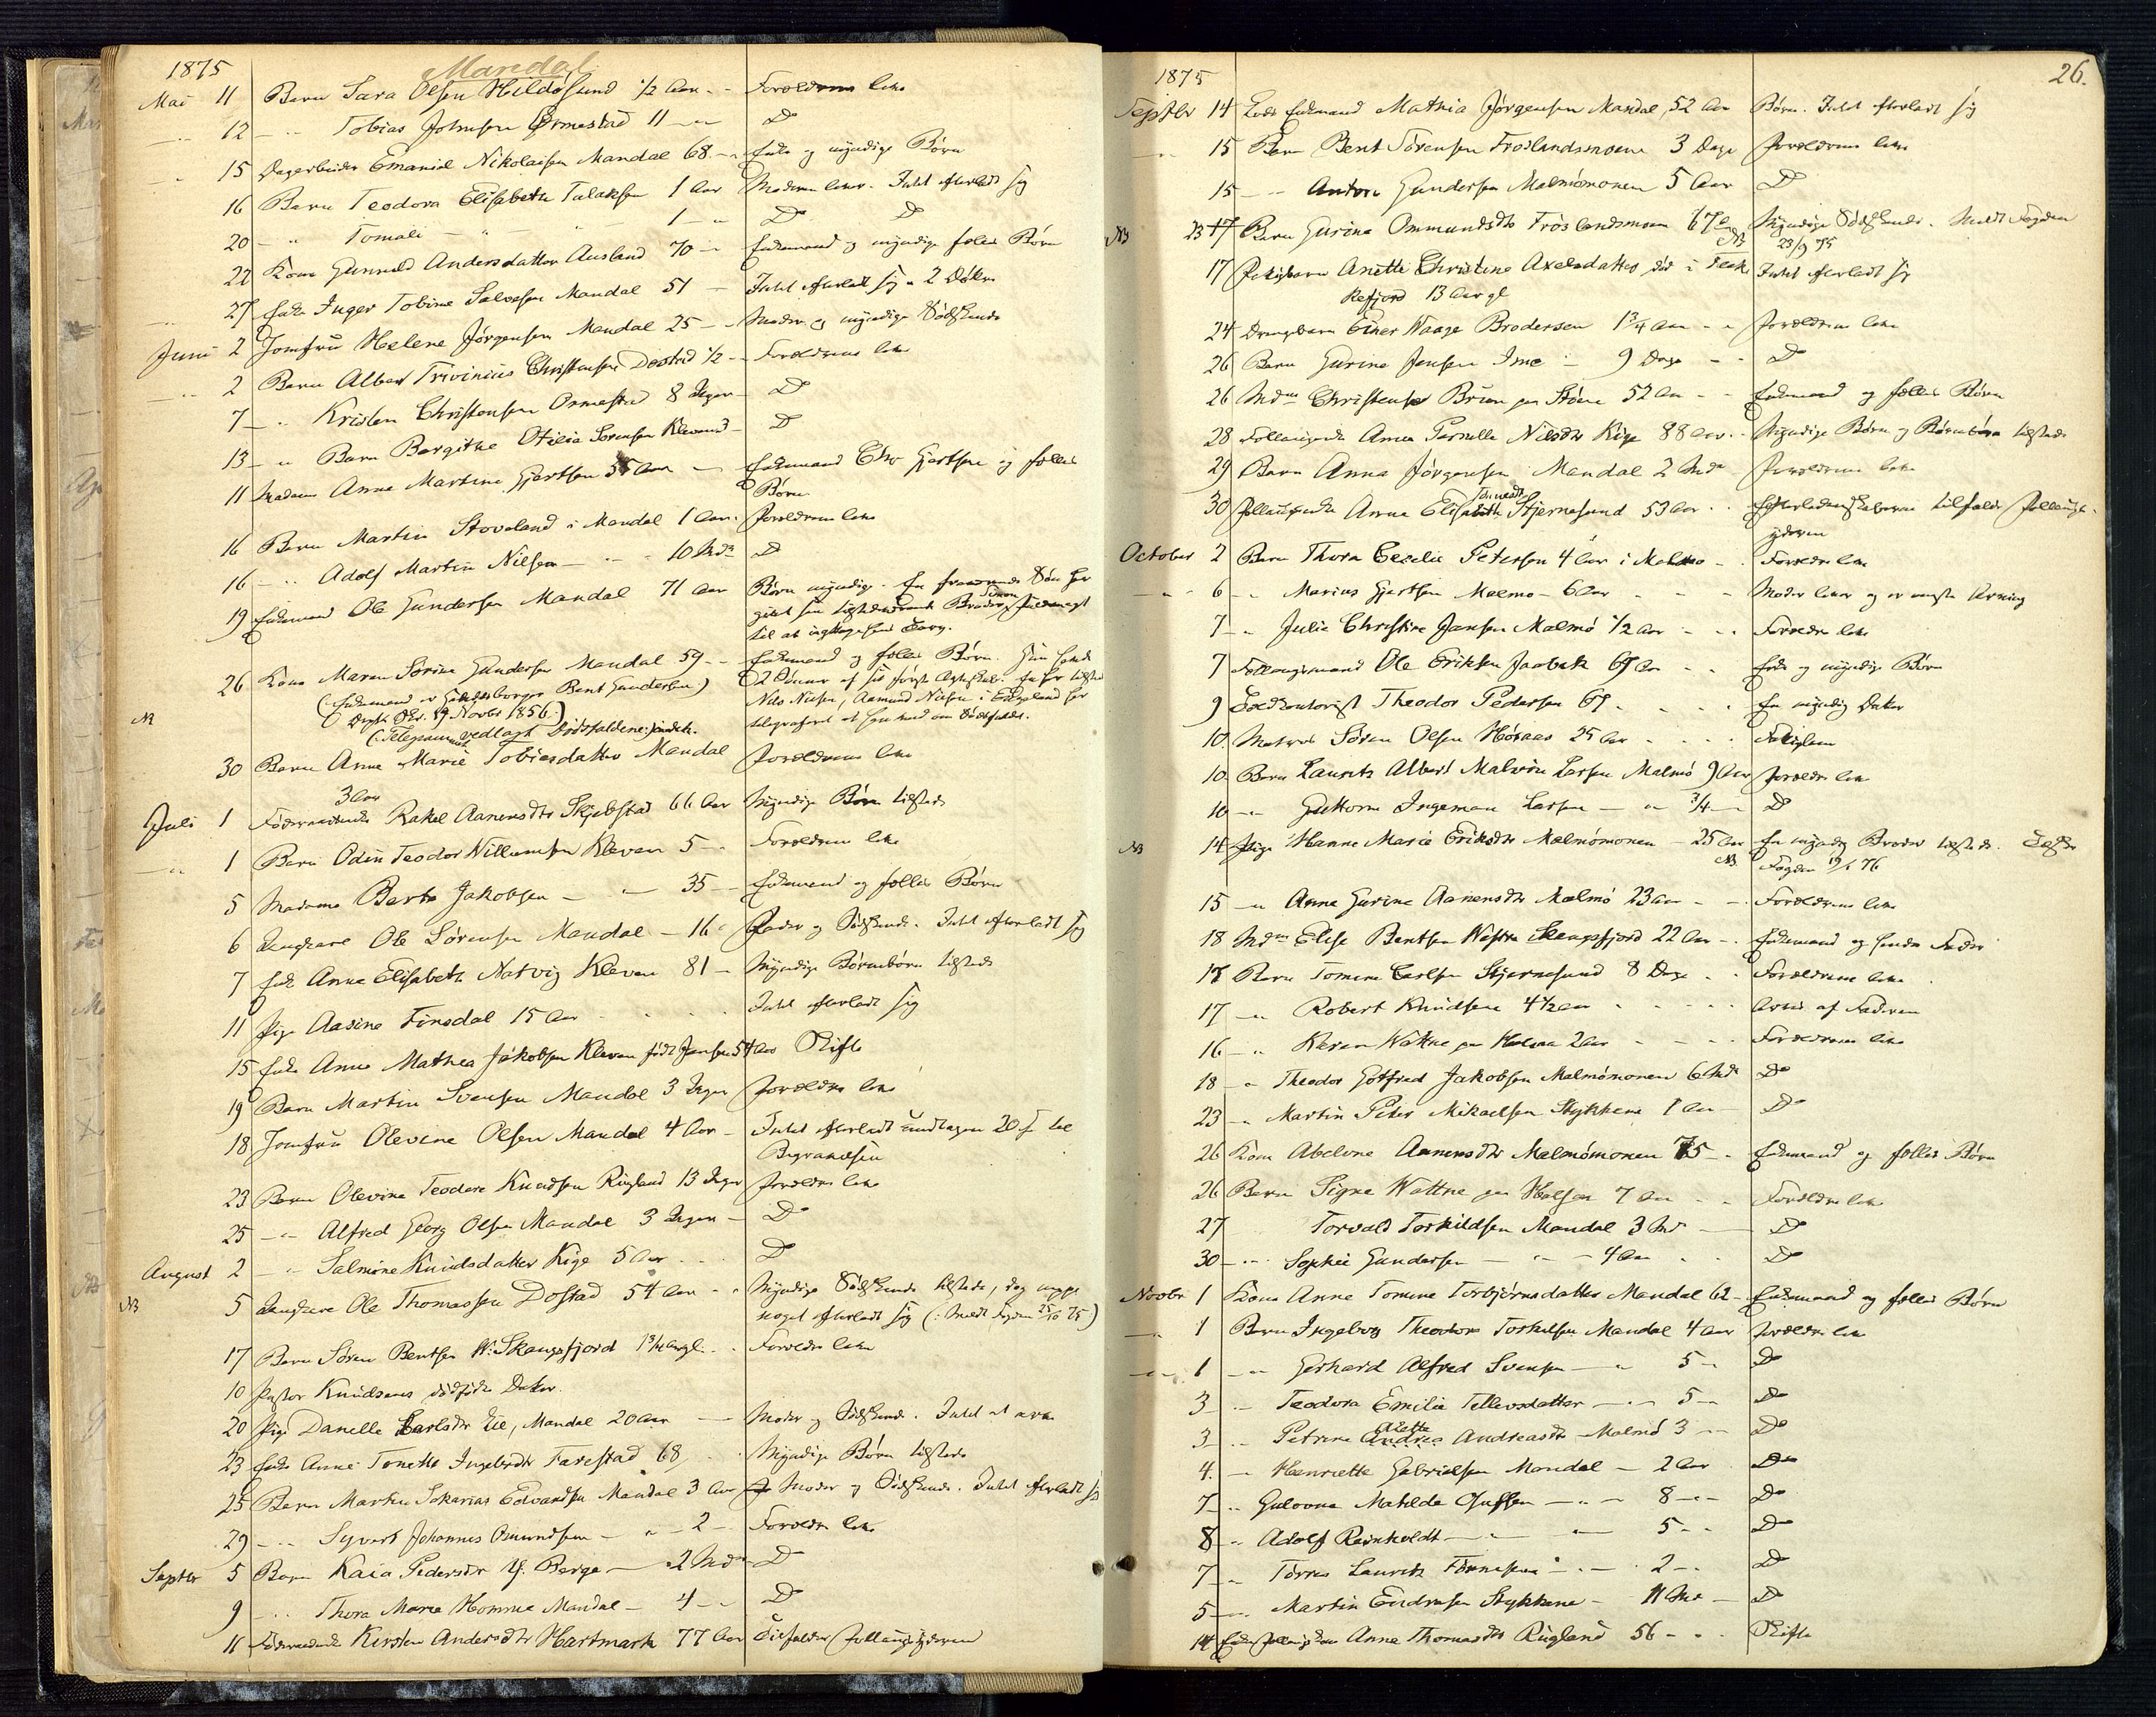 1875
Mandal
Mai 11 Barn Sara Olsen Hildøsund 1/2 Aar Forældrene leve
12 Tobias Johnsen Ormestad 11 Do
15 Dagarbeider Emanuel Nikolaisen Mandal 68 Enke og myndige Børn
16 Barn Teodora Elisabeth Talaksen 1 Aar Moderen lever. Intet efterladt sig
20 Tomali 1 Do Do
22 Kone Gunnild Andersdatter Ausland 70 Enkemand og myndige fælles Børn
27 Enke Inger Tobine Salvesen Mandal 51 Intet efterladt sig 2 Døtre
Juni 2 Jomfru Helene Jørgensen Mandal 25 Moder og myndige Sødskende
2 Barn Albert Trivinius Christensen Dostad 1/2 Forældrene leve
7 Kristen Christensen Ormestad 8 Dager Do
13 Barn Bergithe Otilia Sørensen Kleven Do
11 Madame Anne Martine Gjertsen 55 Aar Enkemand Chr Gjertsen og fælles
Børn
16 Barn Martin Stoveland i Mandal 1 Aar Forældrene leve
16 Adolf Martin Nilsen 10 Mdr Do
19 Enkemand Ole Gundersen Mandal 71 Aar Børn myndige. En fraværende Søn har
givet sin Broder Fuldmagt
til at iagttage hans Tarv.
26 Kone Maren Sørine Gundersen Mandal 59 Enkemand og fælles Børn.
(Enkemand er Bent Gundersen) 2 Sønner af sit første Ægteskab
Novbr 1856.) Nils Nilsen, Aamund Nilsen i
NB (Telegrammet vedlagt telegraferet
30 Barn Anne Marie Tobiasdatter Mandal Forældrene leve
3 Aar
Juli 1 Rakel Aanensdtr Skjebstad 66 Aar Myndige Børn tilstede
1 Barn Odin Teodor Willumsen Kleven 5 Forældrene leve
5 Madame Berte Jakobsen 35 Enkemand og fælles Børn
6 Ungkarl Ole Sørensen Mandal 16 Fader og Sødskende. Intet efterladt sig
7 Enke Anne Elisabeth Natvig Kleven 81 Myndige Børnebørn tilstede
11 Pige Aasine Finsdal 15 Aar Intet efterladt sig
15 Enke Anne Mathea Jakobsen Kleven født Jansen 54 Aar Skifte
19 Barn Martin Svensen Mandal 3 Dager Forældre leve
18 Jomfru Olevine Olsen Mandal 4 Aar Intet efterladt undtagen 20 til
Begravelsen
23 Barn Olevine Teodore Knudsen Rugland 13 Dager Forældre leve
25 Alfred Georg Olsen Mandal 3 Dager Do
August 2 Salmine Knudsdatter Kige 5 Aar Do
NB 5 Ungkarl Ole Thomassen Dostad 54 Aar Myndige Sødskende tilstede, dog neppe
noget efterladt sig (: Meldt Fogden 25/10 75)
17 Barn Søren Bentsen W. Skaugsfjord 1 3/4 Aar gl. Forældre leve
10 Pastor Knudsens dødfødte Datter.
20 Pige Danelle Carlsdtr Mandal 20 Aar Moder og Sødskende. Intet at arve
23 Enke Anne Tonette Ingebrdtr Farestad 68 Myndige Børn tilstede
25 Barn Martin Sakarias Edvardsen Mandal 3 Aar Moder og Sødskende. Intet efterladt sig
29 Syvert Johannes Omundsen 2 Forældre leve
Septbr 5 Barn Kaia Pedersdtr Y. Berge 2 Mdr Do
9 Thora Maria Homme Mandal 4 Do
11 Kirsten Andersdtr Hartmark 77 Aar Tilfalder
1875
26.
Septbr 14 Lods Enkemand Mathia Jørgensen Mandal, 52 Aar Børn. Intet efterladt sig
15 Barn Bent Sørensen Froslandsmoene 3 Dage Forældrene leve
15 Antore Gundersen Malmømonen 5 Aar Do
NB 23 17 Barn Gurine Ommundsdtr Froslandsmoen 67 Myndige Sødskende. Meldt Fogden
NB 23/9 75
17 Pigebarn Anette Christine Axelsdatter død i Intet efterladt sig
13 Aar gl
24 Drengebarn Einer Waage Brodersen 1 3/4 Aar Forældrene leve
26 Barn Gurine Jensen Ime 9 Dage Do
26 Mdm Christense Bruun 52 Aar Enkemand og fælles Børn
28 Anna Pernelle Nilsdtr Kige 88 Aar Myndige Børn og Børnebørn tilstede
29 Barn Anna Jørgensen Mandal 2 Mdr Forældrene leve
30 Anne Elisabeth Stjernesund 53 Aar tilfalder
October 2 Barn Thora Cecelie Petersen 4 Aar i Malmø Forældre leve
6 Marius Gjertsen Malmø 6 Aar Moder lever og er eneste Arving
7 Julie Christine Jansen Malmø 1/2 Aar Forældre leve
7 Ole Eriksen Jaabæk 69 Aar Enke og myndige Børn
9 Theodor Pedersen 69 En myndig Datter
10 Matros Søren Olsen Høiaas 25 Aar
10 Barn Laurits Albert Malvin Larsen Malmø 9 Aar Forældre leve
10 Guttorm Ingeman Larsen 3/4 Do
NB 14 Pige Hanne Marie Eriksdtr Malmømonen 25 Aar En myndig Broder tilstede.
NB Fogden 19/1 76
15 Anne Gurine Aanensdtr Malmø 23 Aar Forældrene leve
18 Mdm Elise Bentsen Westre Skaugsfjord 22 Aar Enkemand og hendes Fader
18 Barn Tomine Carlsen Stjernesund 8 Dage Forældrene leve
17 Robert Knudsen 4 1/2 Aar Arves af Faderen
16 Karen Wattne paa 2 Aar Forældrene leve
18 Theodor Gotfred Jakobsen Malmømonen 6 Mdr Do
23 Martin Peter Mikaelsen Stykkene 1 Aar Do
26 Kone Abelone Aanensdtr Malmømonen 75 Enkemand og fælles Børn
26 Barn Signe Wattne 7 Aar Forældre leve
27 Torvald Torkildsen Mandal 3 Mdr Do
30 Sophie Gundersen 4 Aar Do
Novbr 1 Kone Anne Tomine Torbjørnsdatter Mandal 62 Enkemand og fælles Børn
1 Barn Ingeborg Theodora Torkelsen Mandal 4 Aar Forældre leve
1 Gerhard Alfred Svensen 5 Do
3 Teodora Emilie Tellevsdatter 5 Do
3 Petrine Andrea Andreasdtr Malmø 3 Do
4. Henriette Gabrielsen Mandal 2 Aar Do
7 Gulovna Matilde 8 Do
8 Adolf Reinholdt 5 Do
7 Tørres Laurits Tønnesen 2 Do
5 Martin Endresen Stykkene 11 Mdr Do
14 Enke Anne Thomasdtr Rugland 56 Skifte